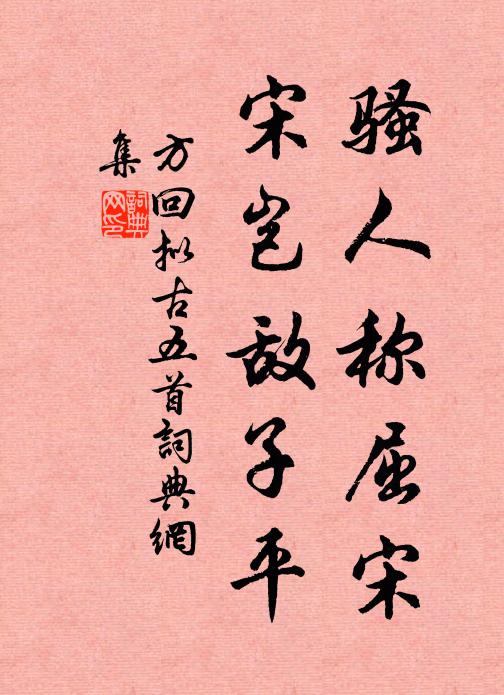 骚人称屈宋
宋岂敌子平
方回拟古五首詞典網
集
詞典
网印